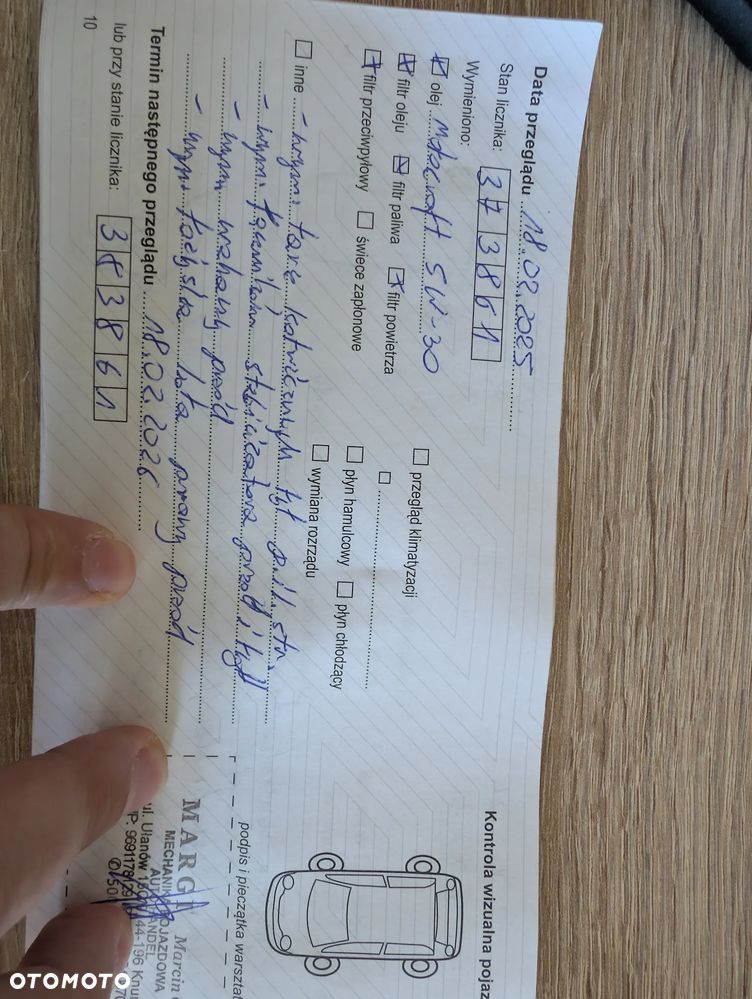 Data przeglądu 18.02.2025
Stan licznika: 373861
Wymieniono:
olej Motocraft 5W-30
filtr oleju filtr paliwa filtr powietrza
filtr przeciwpyłowy świece zapłonowe
przegląd klimatyzacji
płyn hamulcowy płyn chłodzący
wymiana rozrządu
inne - wym. tarc kotwicznych tył
- wym. łączników stabilizatora przód i tył
- wym. wahaczy przód
- wym. łożyska koła prawy przód
Termin następnego przeglądu 18.02.2026
lub przy stanie licznika: 383861
10
Kontrola wizualna pojaz
podpis i pieczątka warsztat
Marcin
MECHANIKA POJAZDOWA
ul. Ulanów
44-196 Knu
OTOMOTO